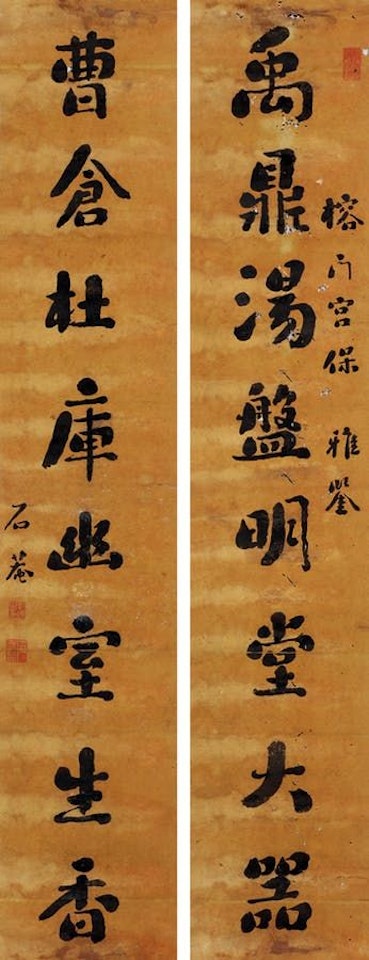 榕门宫保 雅鉴
禹鼎湯盤明堂大器
曹倉杜庫幽室生香
石菴